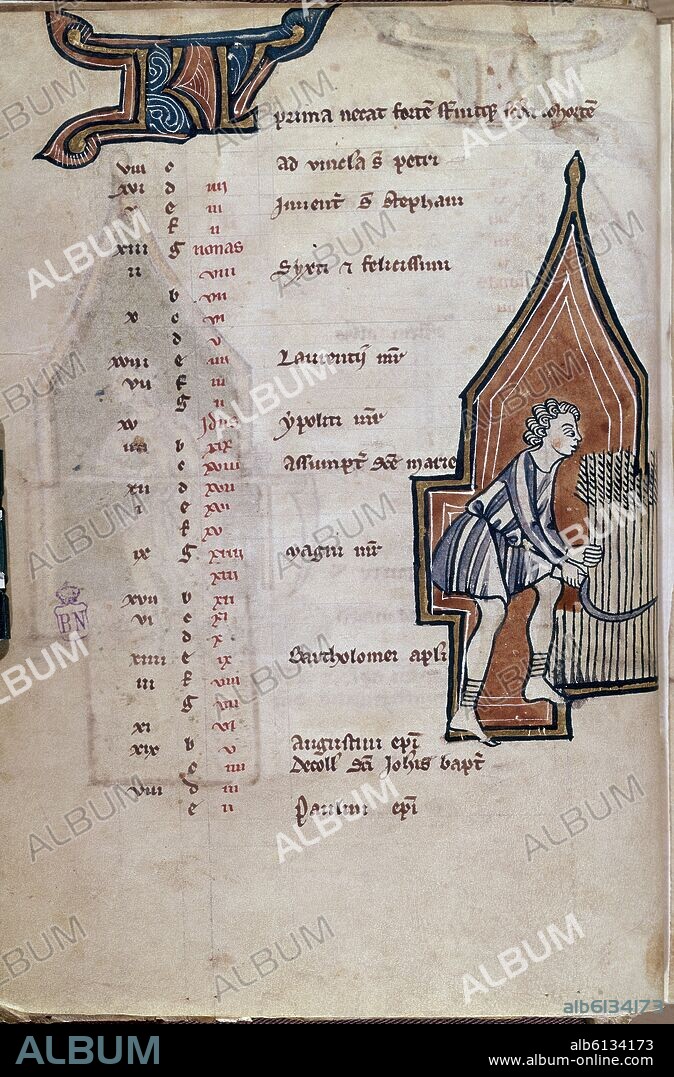 KL
prima necat fortē
viii c ad vincla s̄ petri
xvi d iiii
e iii Inuent̄ s̄ stephani
f ii
xiii g nonas
ii viii Syxti ⁊ felicissimi
b vii
x c vi
d v
xviii e iiii Laurentij mr̄
vii f iii
g ii
xv Idus ypoliti mr̄
iiii b xix
c xviii Assumpt̄ scē marie
xii d xvii
i e xvi
f xv
ix g xiiii magni mr̄
xiii
xvii b xii
vi c xi
d x
xiiii e ix Bartholomei apli
iii f viii
g vii
xi vi
xix b v Augustini epī
c iiii decoll̄ scī Johīs bapt̄
viii d iii
e ii Paulini epī
BN
ALBUM
alb6134173
ALBUM alb6134173
www.album-online.com